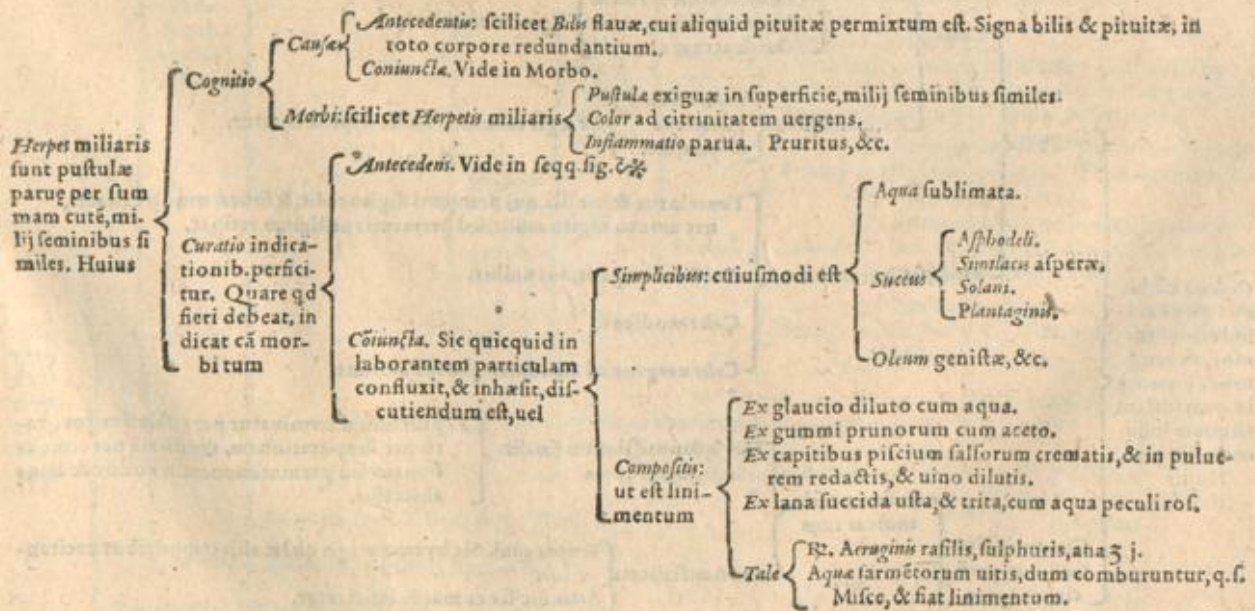 Herpes miliaris
sunt pustulæ
paruę per sum
mam cutē, mi-
lij seminibus si
miles. Huius
Cognitio
Causæ
Antecedentis: scilicet Bilis flauæ, cui aliquid pituitæ permixtum est. Signa bilis & pituitæ, in
toto corpore redundantium.
Coniunctæ. Vide in Morbo.
Morbi: scilicet Herpetis miliaris
Pustulæ exiguæ in superficie, milij seminibus similes.
Color ad citrinitatem uergens.
Inflammatio parua. Pruritus, &c.
Curatio indica-
tionib. perfici-
tur. Quare qd
fieri debeat, in
dicat cā mor-
bi tum
Antecedens. Vide in seqq. sig.
Cōiuncta. Sic quicquid in
laborantem particulam
confluxit, & inhæsit, dis-
cutiendum est, uel
Simplicibus: cuiusmodi est
Aqua sublimata.
Succus
Asphodeli.
Similacis asperæ.
Solani.
Plantaginis.
Oleum genistæ, &c.
Compositis:
ut est lini-
mentum
Ex glaucio diluto cum aqua.
Ex gummi prunorum cum aceto.
Ex capitibus piscium salsorum crematis, & in pulue-
rem redactis, & uino dilutis.
Ex lana succida usta, & trita, cum aqua peculi ros.
Tale
℞. Aeruginis rasilis, sulphuris, ana ʒ j.
Aquæ sarmētorum uitis, dum comburuntur, q. s.
Misce, & fiat linimentum.